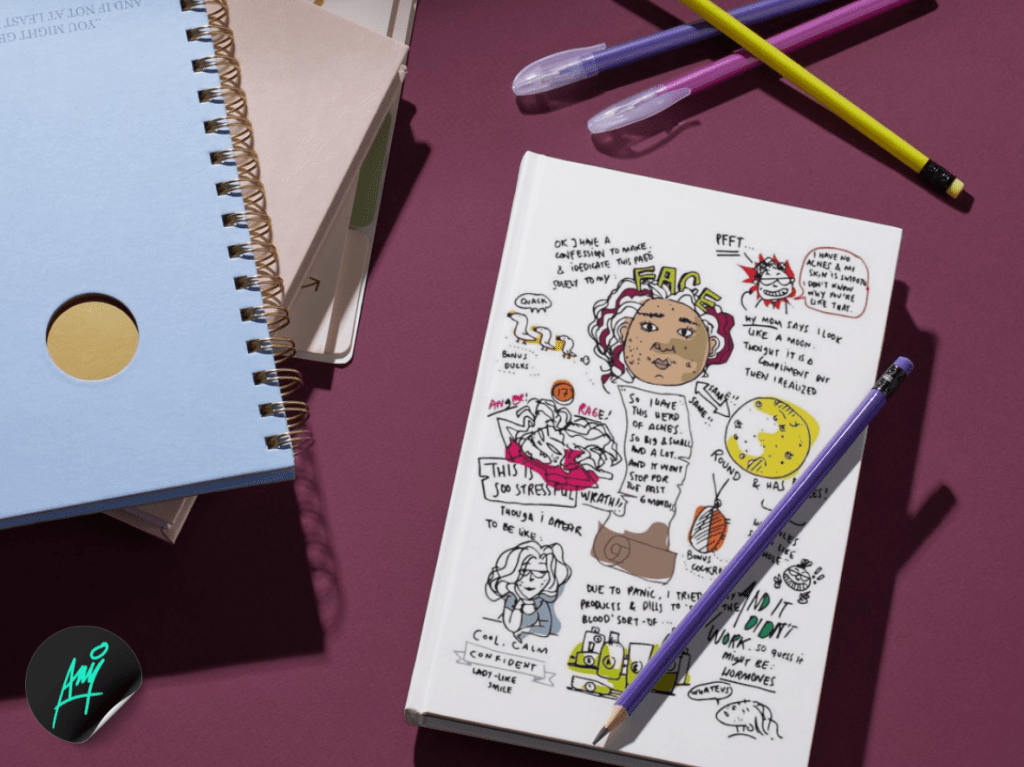 ..YOU MIGHT GE
AND IF NOT AT LEAST
OK I HAVE A
CONFESSION TO MAKE.
& I DEDICATE THIS PAGE
TO MY:
FACE
QUACK
BONUS
DUCKS.
PFFT...
I HAVE NO
ACNES & MY
SKIN IS SMOOTH
I DON'T KNOW
WHY YOU'RE
LIKE THAT.
MY MOM SAYS I LOOK
LIKE A MOON.
THOUGHT IT IS A
COMPLIMENT BUT
THEN I REALIZED
SAME
17
ANGER!
RAGE!
THIS IS
SOO STRESSFUL
WRATH!!
"SO I HAVE
THIS HERD
OF ACNES.
SO BIG & SMALL
AND A LOT..
AND IT WON'T
STOP FOR
THE PAST
6 MONTHS
ROUND & HAS
THOUGH I APPEAR
TO BE LIKE:
BONUS
COOL. CALM
CONFIDENT
LADY-LIKE
SMILE
DUE TO PANIC, I TRIED
PRODUCTS & PILLS TO
BLOOD' SORT-OF...
LIKE
THE
AND IT
DIDN'T
WORK. SO GUESS IT
MIGHT BE:
HORMONES
WHATEVS
Any